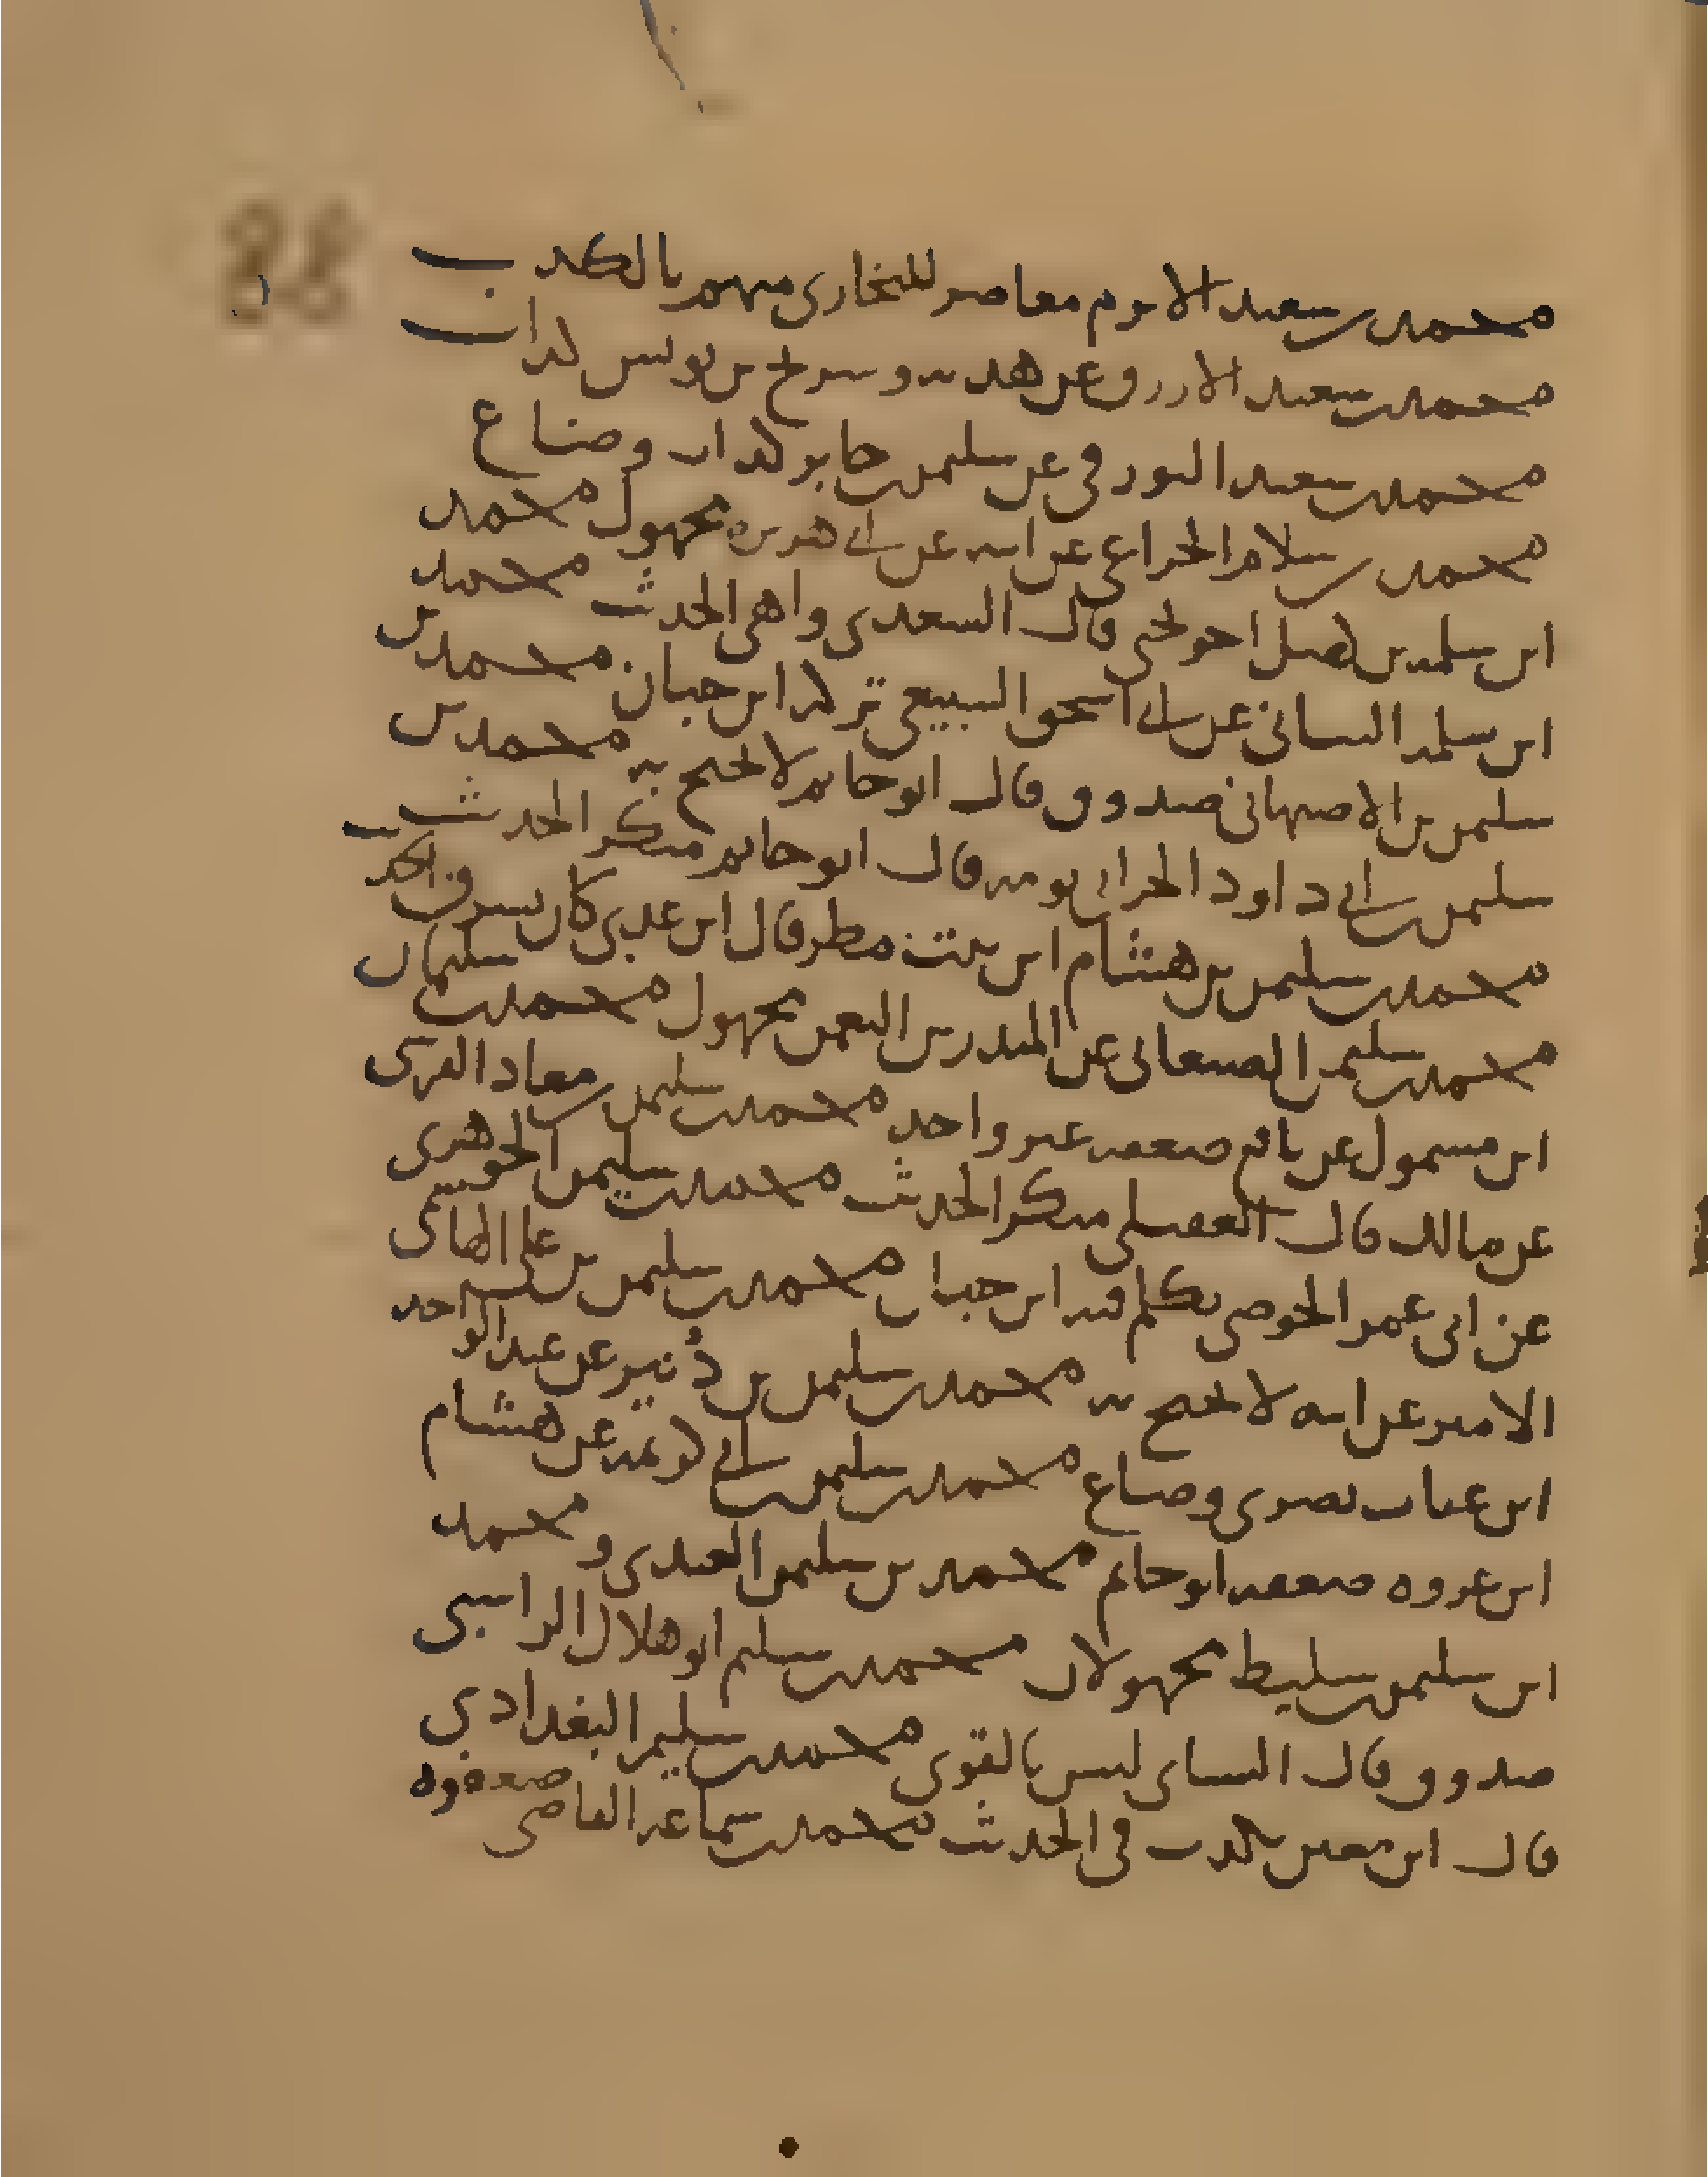 محمد بن سعيد الاثرم معاصر للبخاري متهم بالكذب
محمد بن سعيد الازرق عن هدبه وسريج بن يونس كذاب
محمد بن سعيد البورقي عن سليمن بن جابر كذاب وضاع
محمد بن سلام الخزاعي عن ابيه عن ابي هريره مجهول محمد
ابن سلمه بن كهيل اخو يحيى قال السعدي واهي الحديث محمد
ابن سلمه البناني عن ابي اسحق السبيعي تركه ابن حبان محمد بن
سليمن بن الاصبهاني صدوق وقال ابو حاتم لا يحتج به محمد بن
سليمن بن ابي داود الحراني بومه قال ابو حاتم منكر الحديث
محمد بن سليمن بن هشام ابن بنت مطر قال ابن عدي كان يسرق الحديث
محمد بن سليمن الصنعاني عن المنذر بن النعمن مجهول محمد بن سليمان
ابن مسمول عن نافع ضعفه غير واحد محمد بن سليمن بن معاذ القرشي
عن مالك قال العقيلي منكر الحديث محمد بن سليمن الجوهري
عن ابي عمر الحوضي تكلم فيه ابن حبان محمد بن سليمن بن علي الهاشمي
الامير عن ابيه لا يحتج به محمد بن سليمن بن دُبير عن عبد الواحد
ابن غياث بصري وضاع محمد بن سليمن بن ابي كريمه عن هشام
ابن عروه ضعفه ابو حاتم محمد بن سليمن العبدي ومحمد
ابن سليمن بن سليط مجهولان محمد بن سليم ابو هلال الراسبي
صدوق وقال النساي ليس بالقوي محمد بن سليم البغدادي
قال ابن معين يكذب في الحديث محمد بن سماعه القاضي ضعفوه